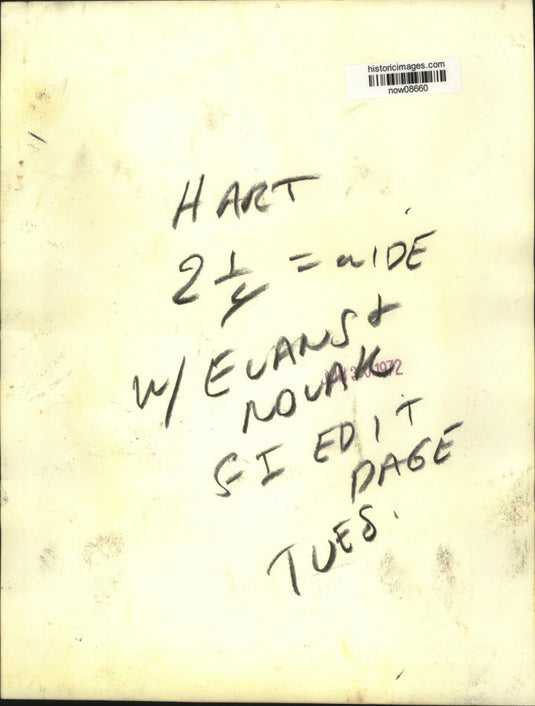 historicimages.com
now08660
HART
2 1/4 = WIDE
W/ EVANS &
NOVAK
1972
S-I EDIT
PAGE
TUES.